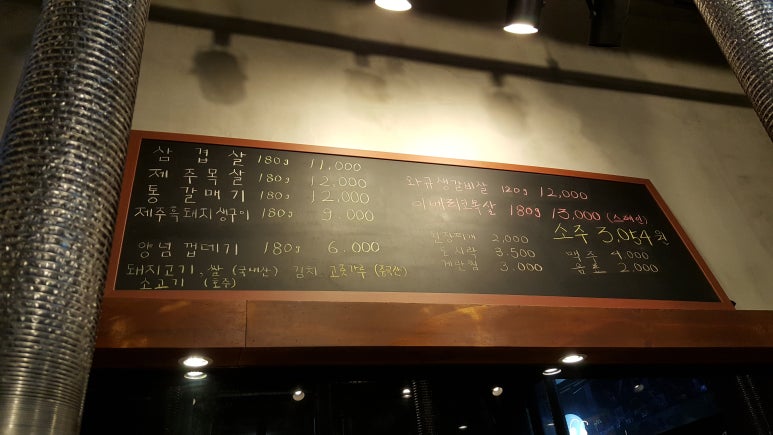 삼겹살 180g 11,000
제주목살 180g 12,000
통갈매기 180g 12,000
제주흑돼지생구이 180g 9.000
양념 껍데기 180g 6.000
돼지고기, 쌀 (국내산) 김치 고춧가루 (중국산)
소고기 (호주)
와규생갈비살 120g 12,000
이베리코목살 180g 13,000 (스페인)
소주 3,054원
된장찌개 2,000
맥주 4,000
도시락 3.500
음료 2.000
계란찜 3.000